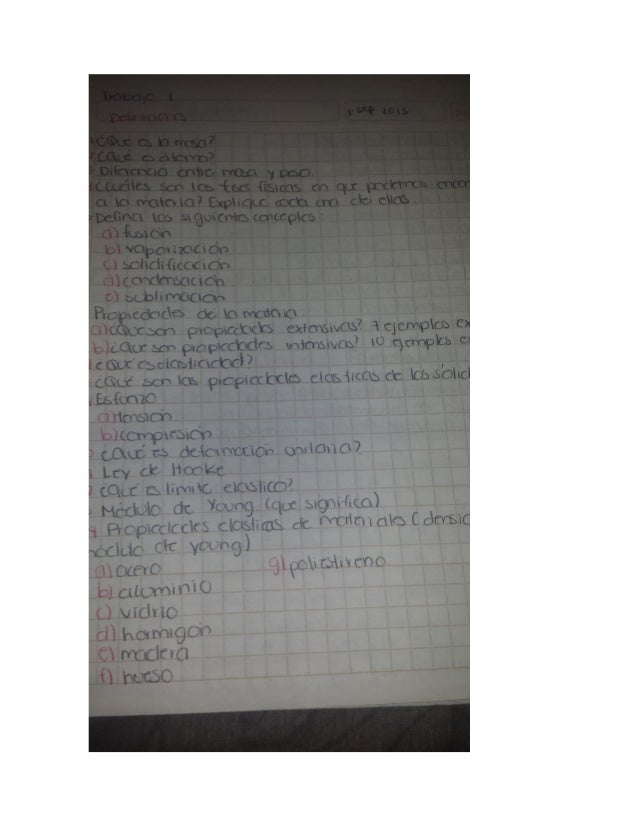 Trabajo 1
Definiciones
sep 2015
¿Qué es la masa?
¿Qué es átomo?
Diferencia entre masa y peso.
¿Cuáles son las fases físicas en que podemos encon
a la materia? Explique cada una de ellas.
Defina los siguientes conceptos:
a) fusión
b) vaporización
c) solidificación
d) condensación
e) sublimación
Propiedades de la materia
a) ¿Que son propiedades extensivas? 7 ejemplos ex
b) ¿Que son propiedades intensivas? 10 ejemplos e
¿Que es elasticidad?
¿Qué son las propiedades elasticas de los sólid
Esfuerzo
a) tensión
b) compresión
¿Qué es deformación unitaria?
Ley de Hooke
¿Qué es limite elástico?
Módulo de Young (que significa)
Propiedades elásticas de materiales (densid
módulo de young)
a) acero
g) poliestireno
b) aluminio
c) vidrio
d) hormigón
e) madera
f) hueso